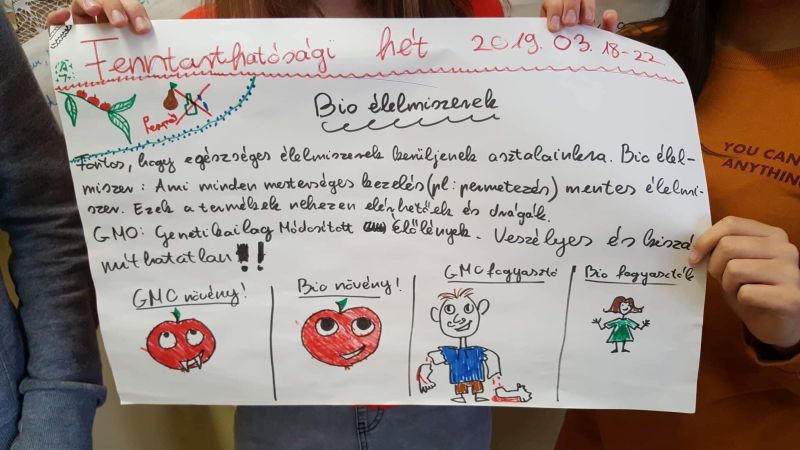 Fenntarthatósági hét 2019. 03. 18-22.
Permet
Bio élelmiszerek
Fontos, hogy egészséges élelmiszerek kerüljenek asztalainkra. Bio élel-
miszer: Ami minden mesterséges kezelés (pl: permetezés) mentes élelmi-
szer. Ezek a termékek nehezen elérhetőek és drágák.
GMO: Genetikailag Módosított élőlények. Veszélyes és kiszá-
míthatatlan!!!
GMO növény!
Bio növény!
GMO fogyasztó
Bio fogyasztók
YOU CAN
ANYTHING